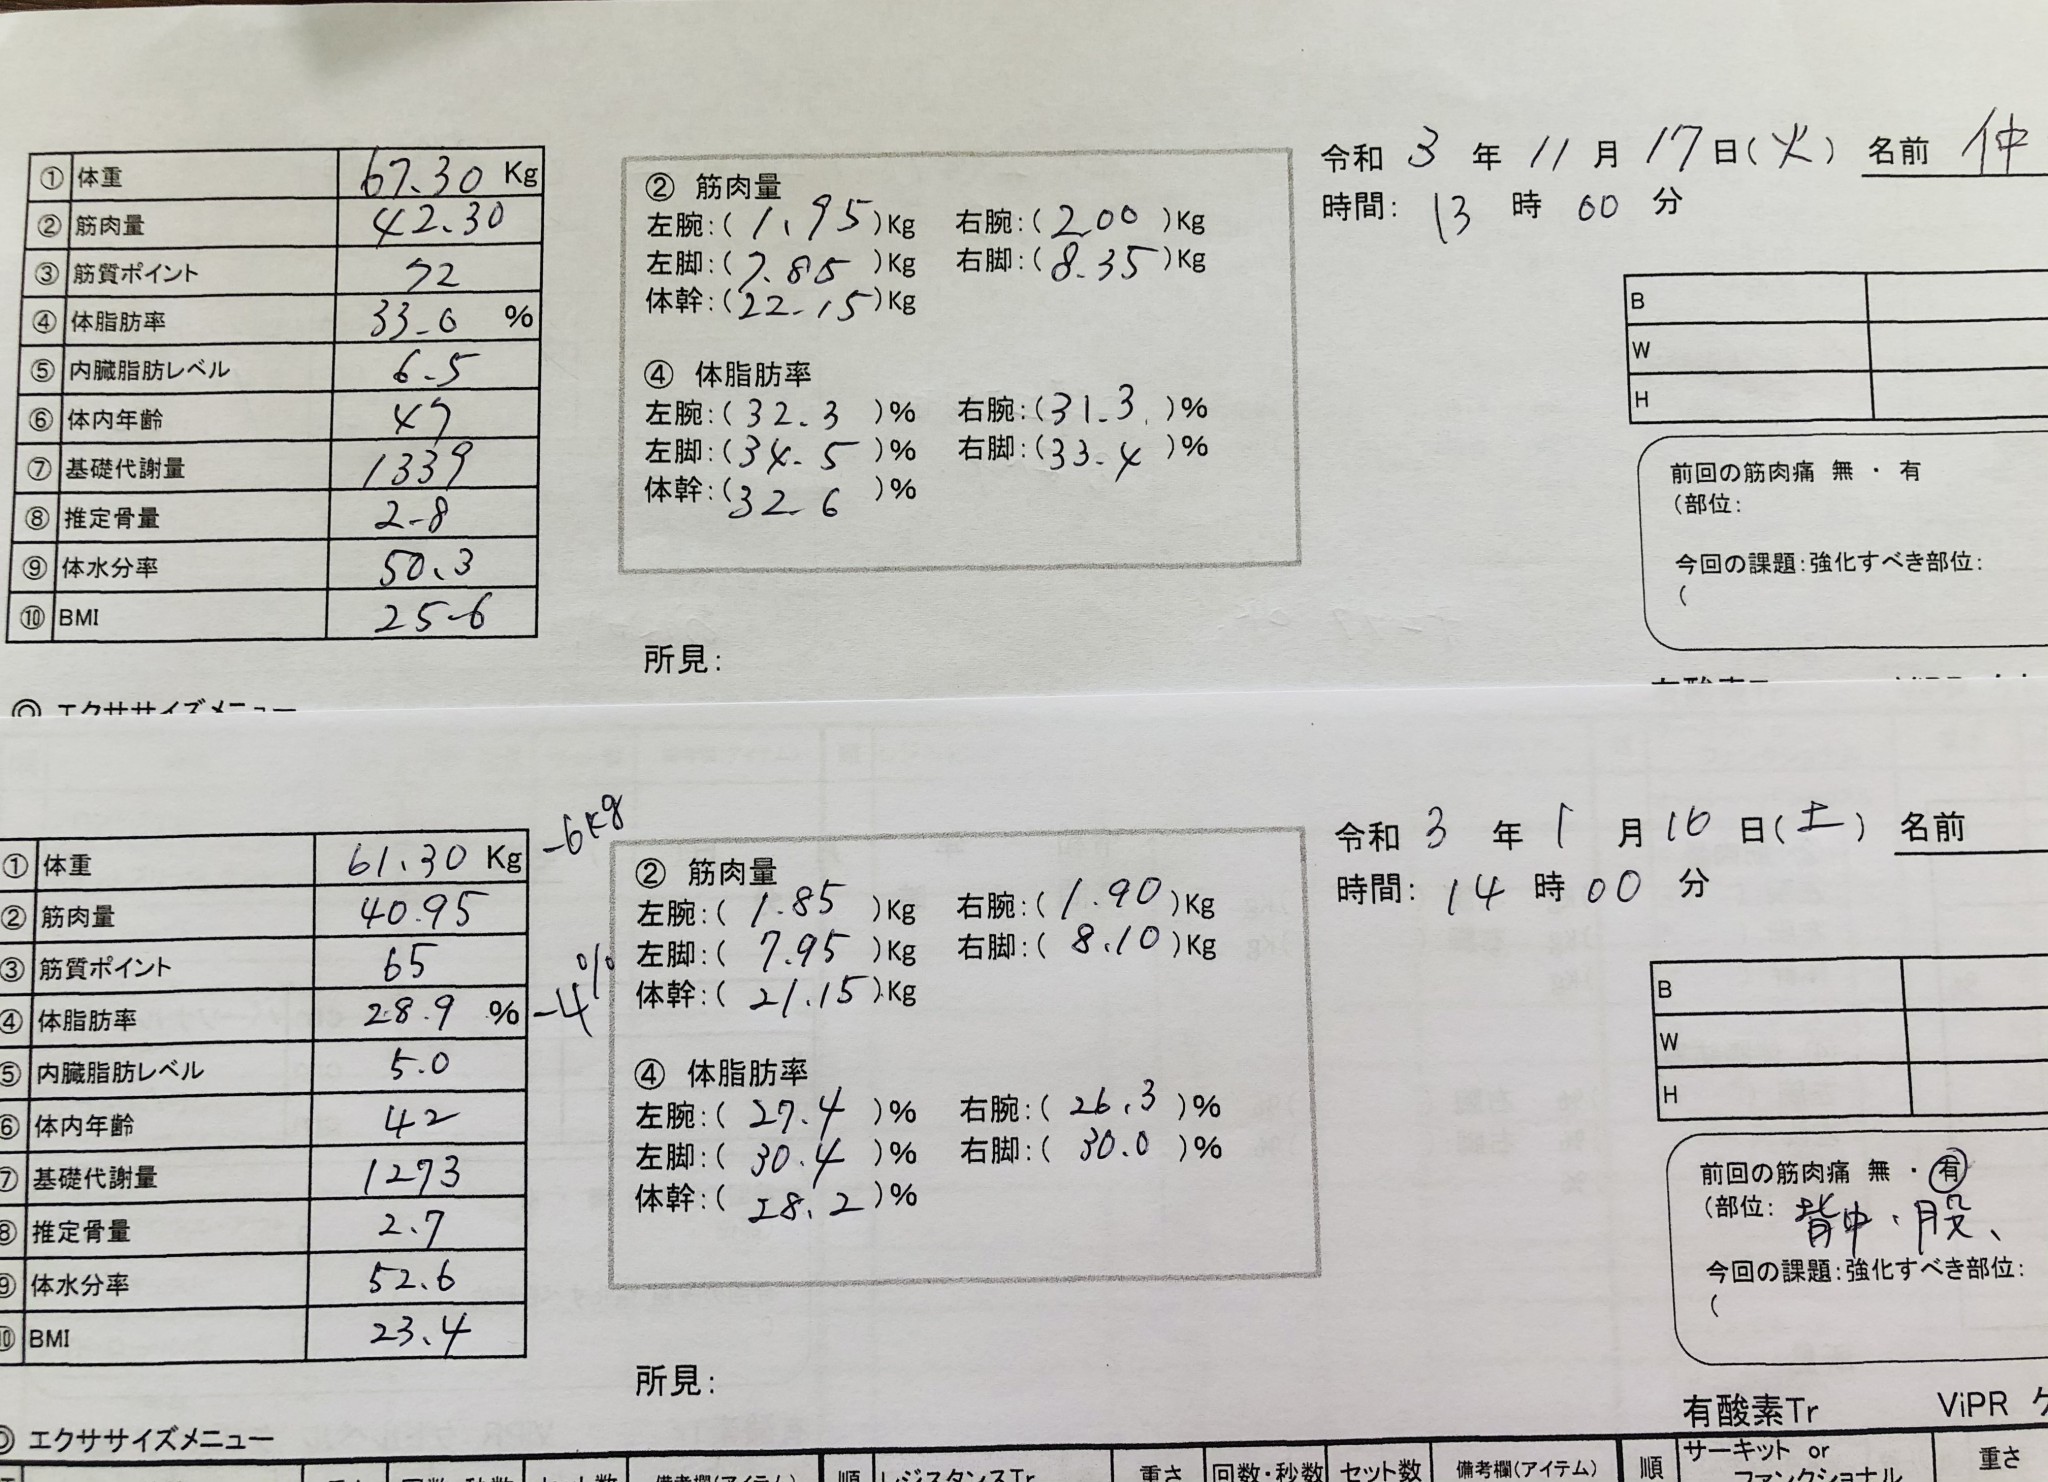 令和 3 年 11 月 17 日(火) 名前 仲
時間: 13 時 00 分
① 体重 67.30 Kg
② 筋肉量 42.30
③ 筋質ポイント 72
④ 体脂肪率 33.0 %
⑤ 内臓脂肪レベル 6.5
⑥ 体内年齢 47
⑦ 基礎代謝量 1339
⑧ 推定骨量 2.8
⑨ 体水分率 50.3
⑩ BMI 25.6
② 筋肉量
左腕:( 1.95 )Kg 右腕:( 2.00 )Kg
左脚:( 7.85 )Kg 右脚:( 8.35 )Kg
体幹:( 22.15 )Kg
④ 体脂肪率
左腕:( 32.3 )% 右腕:( 31.3 )%
左脚:( 34.5 )% 右脚:( 33.4 )%
体幹:( 32.6 )%
所見:
B
W
H
前回の筋肉痛 無 ・ 有
(部位:
今回の課題:強化すべき部位:
(
◎ エクササイズメニュー
令和 3 年 1 月 16 日(土) 名前
時間: 14 時 00 分
① 体重 61.30 Kg -6kg
② 筋肉量 40.95
③ 筋質ポイント 65
④ 体脂肪率 28.9 % -4%
⑤ 内臓脂肪レベル 5.0
⑥ 体内年齢 42
⑦ 基礎代謝量 1273
⑧ 推定骨量 2.7
⑨ 体水分率 52.6
⑩ BMI 23.4
② 筋肉量
左腕:( 1.85 )Kg 右腕:( 1.90 )Kg
左脚:( 7.95 )Kg 右脚:( 8.10 )Kg
体幹:( 21.15 )Kg
④ 体脂肪率
左腕:( 27.4 )% 右腕:( 26.3 )%
左脚:( 30.4 )% 右脚:( 30.0 )%
体幹:( 28.2 )%
所見:
B
W
H
前回の筋肉痛 無 ・ 有
(部位: 背中、股、
今回の課題:強化すべき部位:
(
有酸素Tr ViPR
◎ エクササイズメニュー
順 レジスタンスTr 重さ 回数・秒数 セット数 備考欄(アイテム) 順 サーキット or 重さ
ファンクショナル